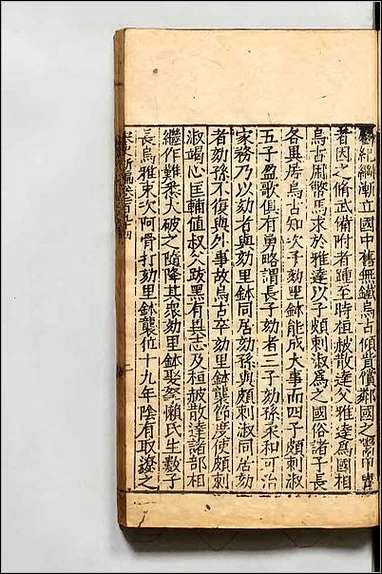 紀綱漸立國中舊無鐵烏古傾貲償鄰國之鬻甲冑
者因之脩武備附者踵至時桓赧散達父雅達爲國相
烏古用幣馬求於雅達以子頗剌淑爲之國俗諸子長
各異居烏古知次子劾里鉢能成大事而四子頗剌淑
五子盈歌俱有勇略謂長子劾者三子劾孫柔和可治
家務乃以劾者與劾里鉢同居劾孫與頗剌淑同居劾
者劾孫不復與外事故烏古卒劾里鉢襲節度使頗剌
淑竭心匡輔值叔父跋黑有異志及桓赧散達諸部相
繼作難悉大破之隨降其衆劾里鉢娶拏懶氏生數子
長烏雅束次阿骨打劾里鉢襲位十九年陰有取遼之
宋史新編卷百九十四
二